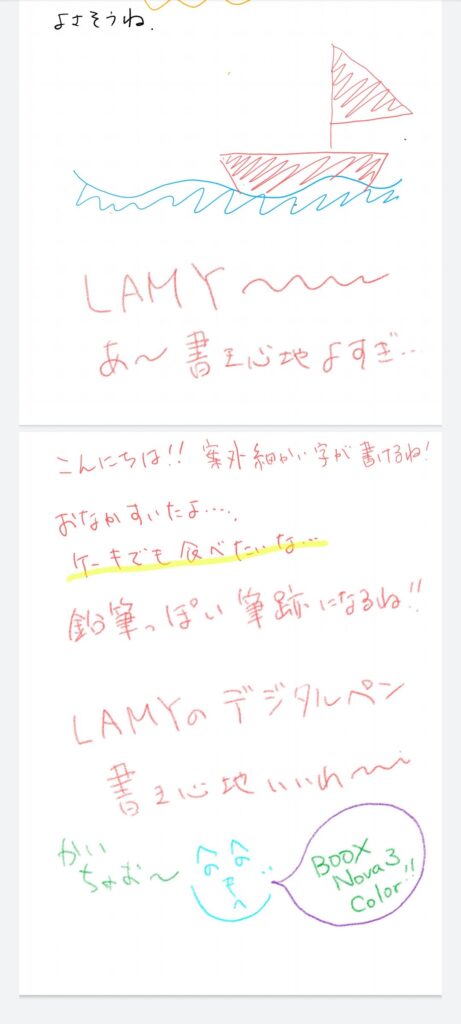 よさそうね.
LAMY〜〜〜
あ〜 書き心地よすぎ…
こんにちは!! 案外細かい字が書けるね!
おなかすいたよ….
ケーキでも食べたいな…
鉛筆っぽい筆跡になるね!!
LAMYのデジタルペン
書き心地いいわ〜
かい
ちょお〜
へへ
のの
も
へ
BOOX
Nova3
Color!!